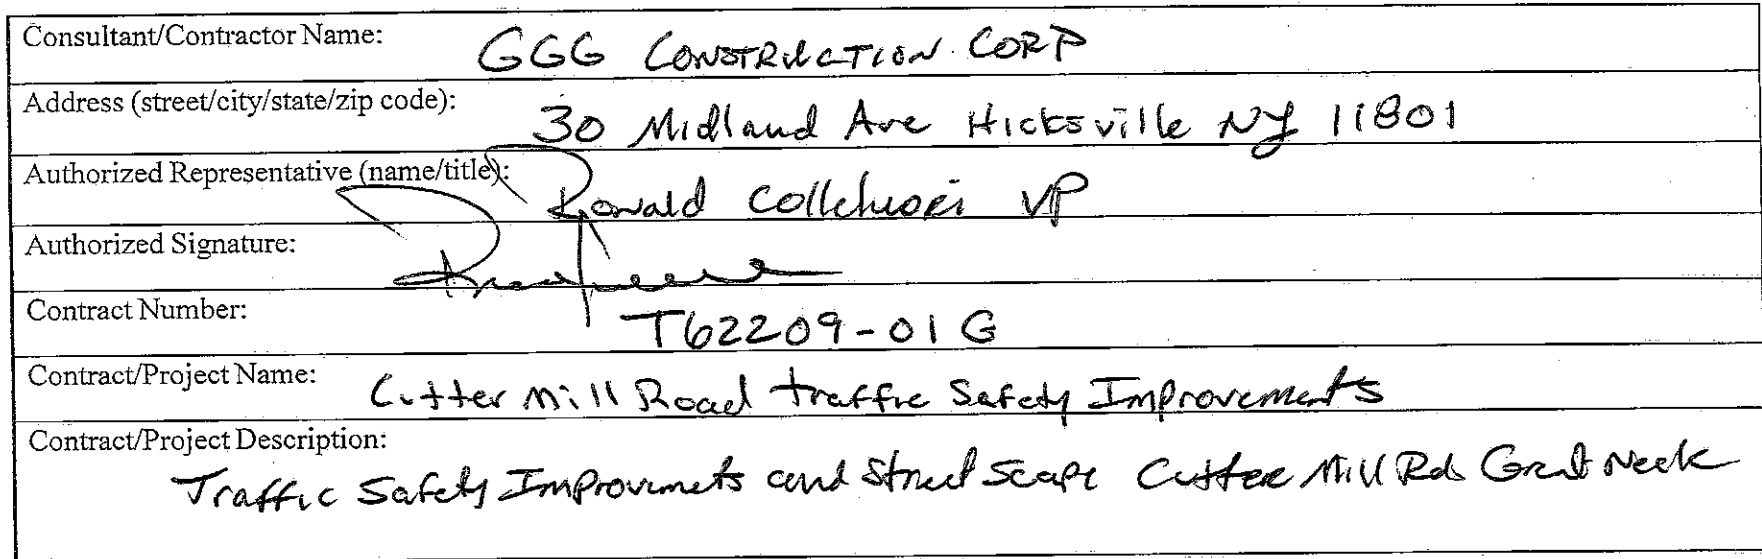 Consultant/Contractor Name: GGG CONSTRUCTION CORP
Address (street/city/state/zip code): 30 Midland Ave Hicksville NY 11801
Authorized Representative (name/title): Ronald VP
Authorized Signature:
Contract Number: T62209-01G
Contract/Project Name: Cutter Mill Road traffic Safety Improvements
Contract/Project Description:
Traffic Safety Improvments and Street Scape Cutter Mill Rds Great Neck